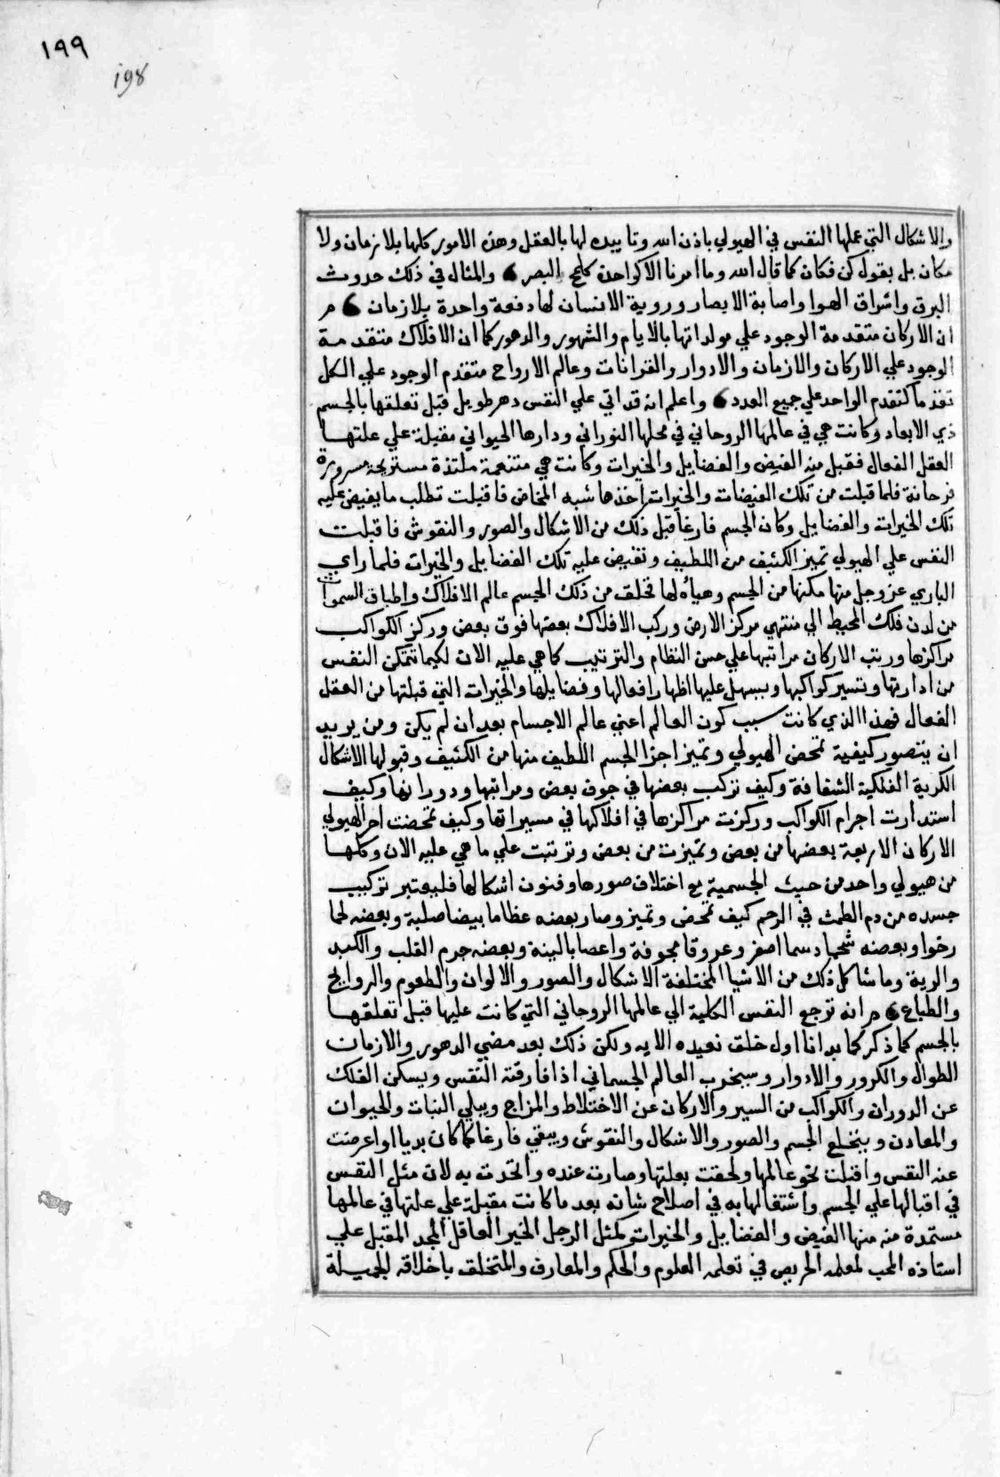 ١٩٩
198
والاشكال التي عملها النفس في الهيولي باذن الله وتاييده لها بالعقل وهذه الامور كلها بلا زمان ولا
مكان بل بقوله كن فكان كما قال الله وما امرنا الا كواحدة كلمح البصر والمثال في ذلك حدوث
البرق واشراق الهوا واصابة الابصار وروية الانسان لها دفعة واحدة بلا زمان م
ان الاركان متقدمة الوجود علي مولداتها بالايام والشهور والدهور كما ان الافلاك متقدمة
الوجود علي الاركان والازمان والادوار والقرانات وعالم الارواح متقدم الوجود علي الكل
تقدما كتقدم الواحد علي جميع العدد واعلم انه قد اتي علي النفس دهر طويل قبل تعلقها بالجسم
ذي الابعاد وكانت هي في عالمها الروحاني في محلها النوراني ودارها الحيواني مقبلة علي علتها
العقل الفعال فقبل منه الفيض والفضايل والخيرات وكانت هي متنعمة ملتذة مستريحة مسرورة
فرحانة فلما قبلت من تلك الفيضات والخيرات اخذها شبه المخاض فاقبلت تطلب ما يفيض عليه
تلك الخيرات والفضايل وكان الجسم فارغا قبل ذلك من الاشكال والصور والنقوش فاقبلت
النفس علي الهيولي تميز الكثيف من اللطيف وتفيض عليه تلك الفضايل والخيرات فلما راي
الباري عز وجل منها مكنها من الجسم وهياه لها فخلق من ذلك الجسم عالم الافلاك واطباق السموات
من لدن فلك المحيط الي منتهي مركز الارض وركب الافلاك بعضها فوق بعض وركز الكواكب
مراكزها ورتب الاركان مراتبها علي حسن النظام والترتيب كما هي عليه الان لكيما تتمكن النفس
من ادارتها وتسير كواكبها ويسهل عليها اظهار افعالها وفضايلها والخيرات التي قبلتها من العقل
الفعال فهذا الذي كانت سبب كون العالم اعني عالم الاجسام بعد ان لم يكن ومن يريد
ان يتصور كيفية تمخض الهيولي وتميز اجزا الجسم اللطيف منها من الكثيف وقبولها الاشكال
الكرية الفلكية الشفافة وكيف تركب بعضها في جوف بعض ومراتبها ودورانها وكيف
استدارت اجرام الكواكب وركزت مراكزها في افلاكها في مسيراتها وكيف تمخضت اخر الهيولي
الاركان الاربعة بعضها من بعض وتميزت من بعض وترتبت علي ما هي عليه الان وكلها
من هيولي واحد من حيث الجسمية مع اختلاف صورها وفنون اشكالها فليعتبر تركيب
جسده من دم الطمث في الرحم كيف تمخض وتميز وصار بعضه عظاما بيضا صلبة وبعضه لحما
رخوا وبعضه شحما دسما اصفر وعروقا مجوفة واعصابا لينة وبعضه جرم القلب والكبد
والرية وما شاكل ذلك من الاشيا المختلفة الاشكال والصور والالوان والطعوم والروايح
والطباع م انه ترجع النفس الكلية الي عالمها الروحاني التي كانت عليها قبل تعلقها
بالجسم كما ذكر كما بدانا اول خلق نعيده الايه ولكن ذلك بعد مضي الدهور والازمان
الطوال والكرور والادوار وسيخرب العالم الجسماني اذا فارقته النفس ويسكن الفلك
عن الدوران والكواكب من السير والاركان عن الاختلاط والمزاج ويبلي النبات والحيوان
والمعادن وينخلع الجسم والصور والاشكال والنقوش ويبقي فارغا كما كان بديا اواعرضت
عنه النفس واقبلت نحو عالمها ولحقت بعلتها وصارت عنده واتحدت به لان مثل النفس
في اقبالها علي الجسم واشتغالها به في اصلاح شانه بعد ما كانت مقبلة علي علتها في عالمها
مستمدة منه منها الفيض والفضايل والخيرات كمثل الرجل الخير العاقل المجد المقبل علي
استاذه المحب لمعلمه الحريص في تعلمه العلوم والحكم والمعارف والمتخلق باخلاقه الجميلة